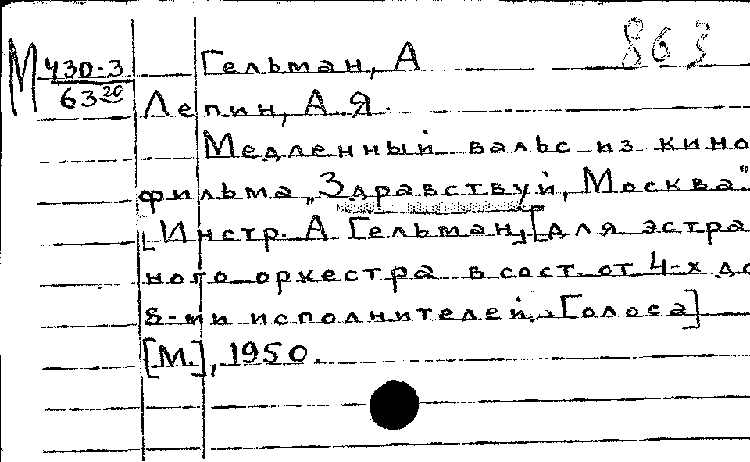 М 430-3 Гельман, А 863
63 20 Лепин, А.Я.
Медленный вальс из кино
фильма „Здравствуй, Москва"
[Инстр. А Гельман,] [для эстра
ного оркестра в сост. от 4-х до
8-ми исполнителей. [Голоса]
[М.], 1950.